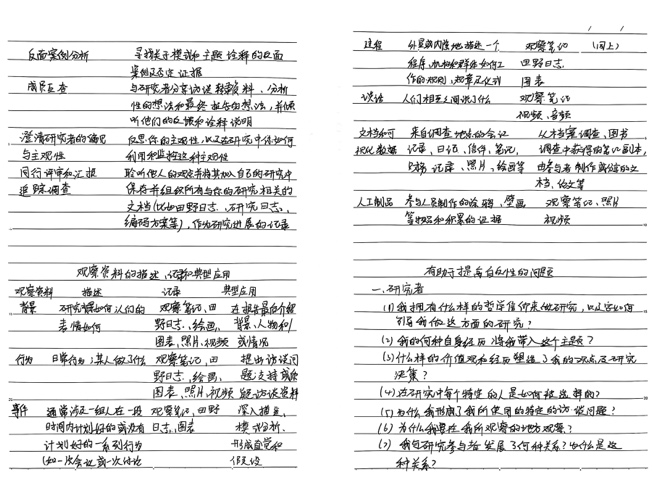 反面案例分析 寻找关于模式和主题诠释的反面
案例及否定证据
成员互查 与研究者分享访谈转录资料、分析
性的想法和最终报告的想法,并倾
听他们的反馈和诠释说明
澄清研究者的偏见 反思你的主观性,以及在研究中你如何
与主观性 利用和监控这种主观性
同行评审和汇报 聆听他人的观点并将其加入自己的研究中
追踪调查 保存并组织所有与你的研究相关的
文档(比如田野日志、研究日志、
编码方案等),作为研究进展的记录
观察资料的描述、记录和典型应用
观察资料 描述 记录 典型应用
背景 研究情境如何人们的 观察笔记、田 在报告最后介绍
表情如何 野日志、绘画、 背景、人物和
图表、照片、视频 或情况
行为 日常行为:某人做了什么 观察笔记、田 提出访谈问
野日志、绘画、 题、支持或
图表、照片、视频 访谈资料
事件 通常涉及一组人在一段 观察笔记、田野 深入描述、
时间内计划好的或没有 日志、图表 模式分析、
计划好的一系列行为 形成直觉和
(如一次会议或一次讨论 假设
过程 描述一个 观察笔记 (同上)
程序、机构和群体如何工 田野日志、
作的规则,规章及仪式 图表
谈话 人们相互之间说什么 观察笔记
视频、音频
文档和可 来自调查地点的会议 从档案调查、图书
视化数据 记录、日记、信件、笔记、 调查中获得的笔记副本,
记录、照片、绘画等 由参与者制作或给的文
档、论文等
人工制品 参与人员制作的 壁画 观察笔记、照片
等物品和积累的证据 视频
有助于提高自反性的问题
一.研究者
(1)我拥有什么样的哲学信仰来做研究,以及它如何
引导我做这方面的研究?
(2)我的何种自身经历将我带入这个主题?
(3)什么样的价值观和经历塑造了我的观点及研究
决策?
(4)在研究中每个特定的人是如何被选择的?
(5)为什么我形成了我所使用的特定的访谈问题?
(6)为什么我要在我所观察的地方观察?
(7)我与研究参与者发展了何种关系?为什么是这
种关系?